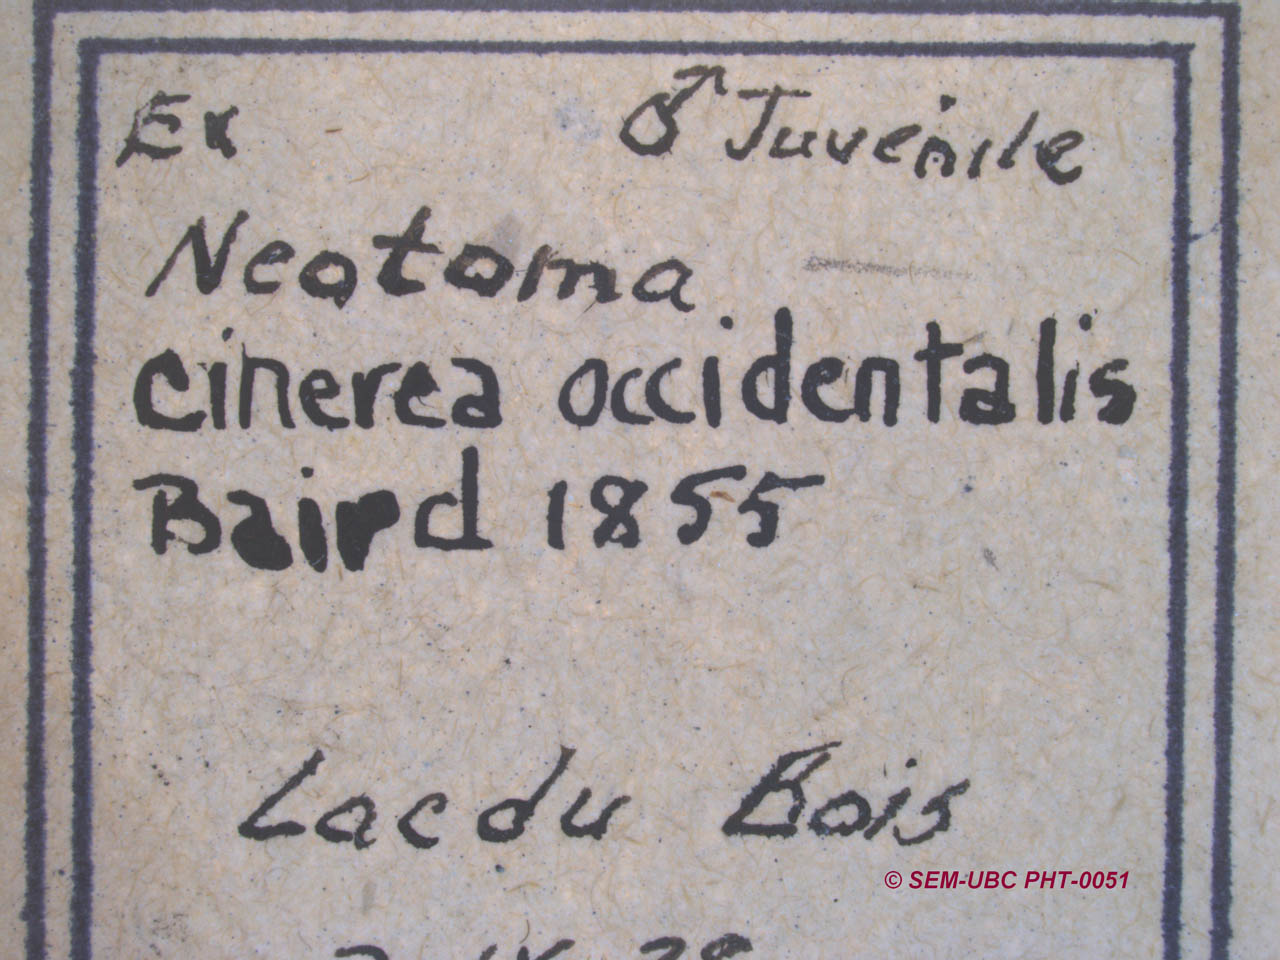 Ex ♂ Juvenile
Neotoma
cinerea occidentalis
Baird 1855
Lac du Bois
© SEM-UBC PHT-0051